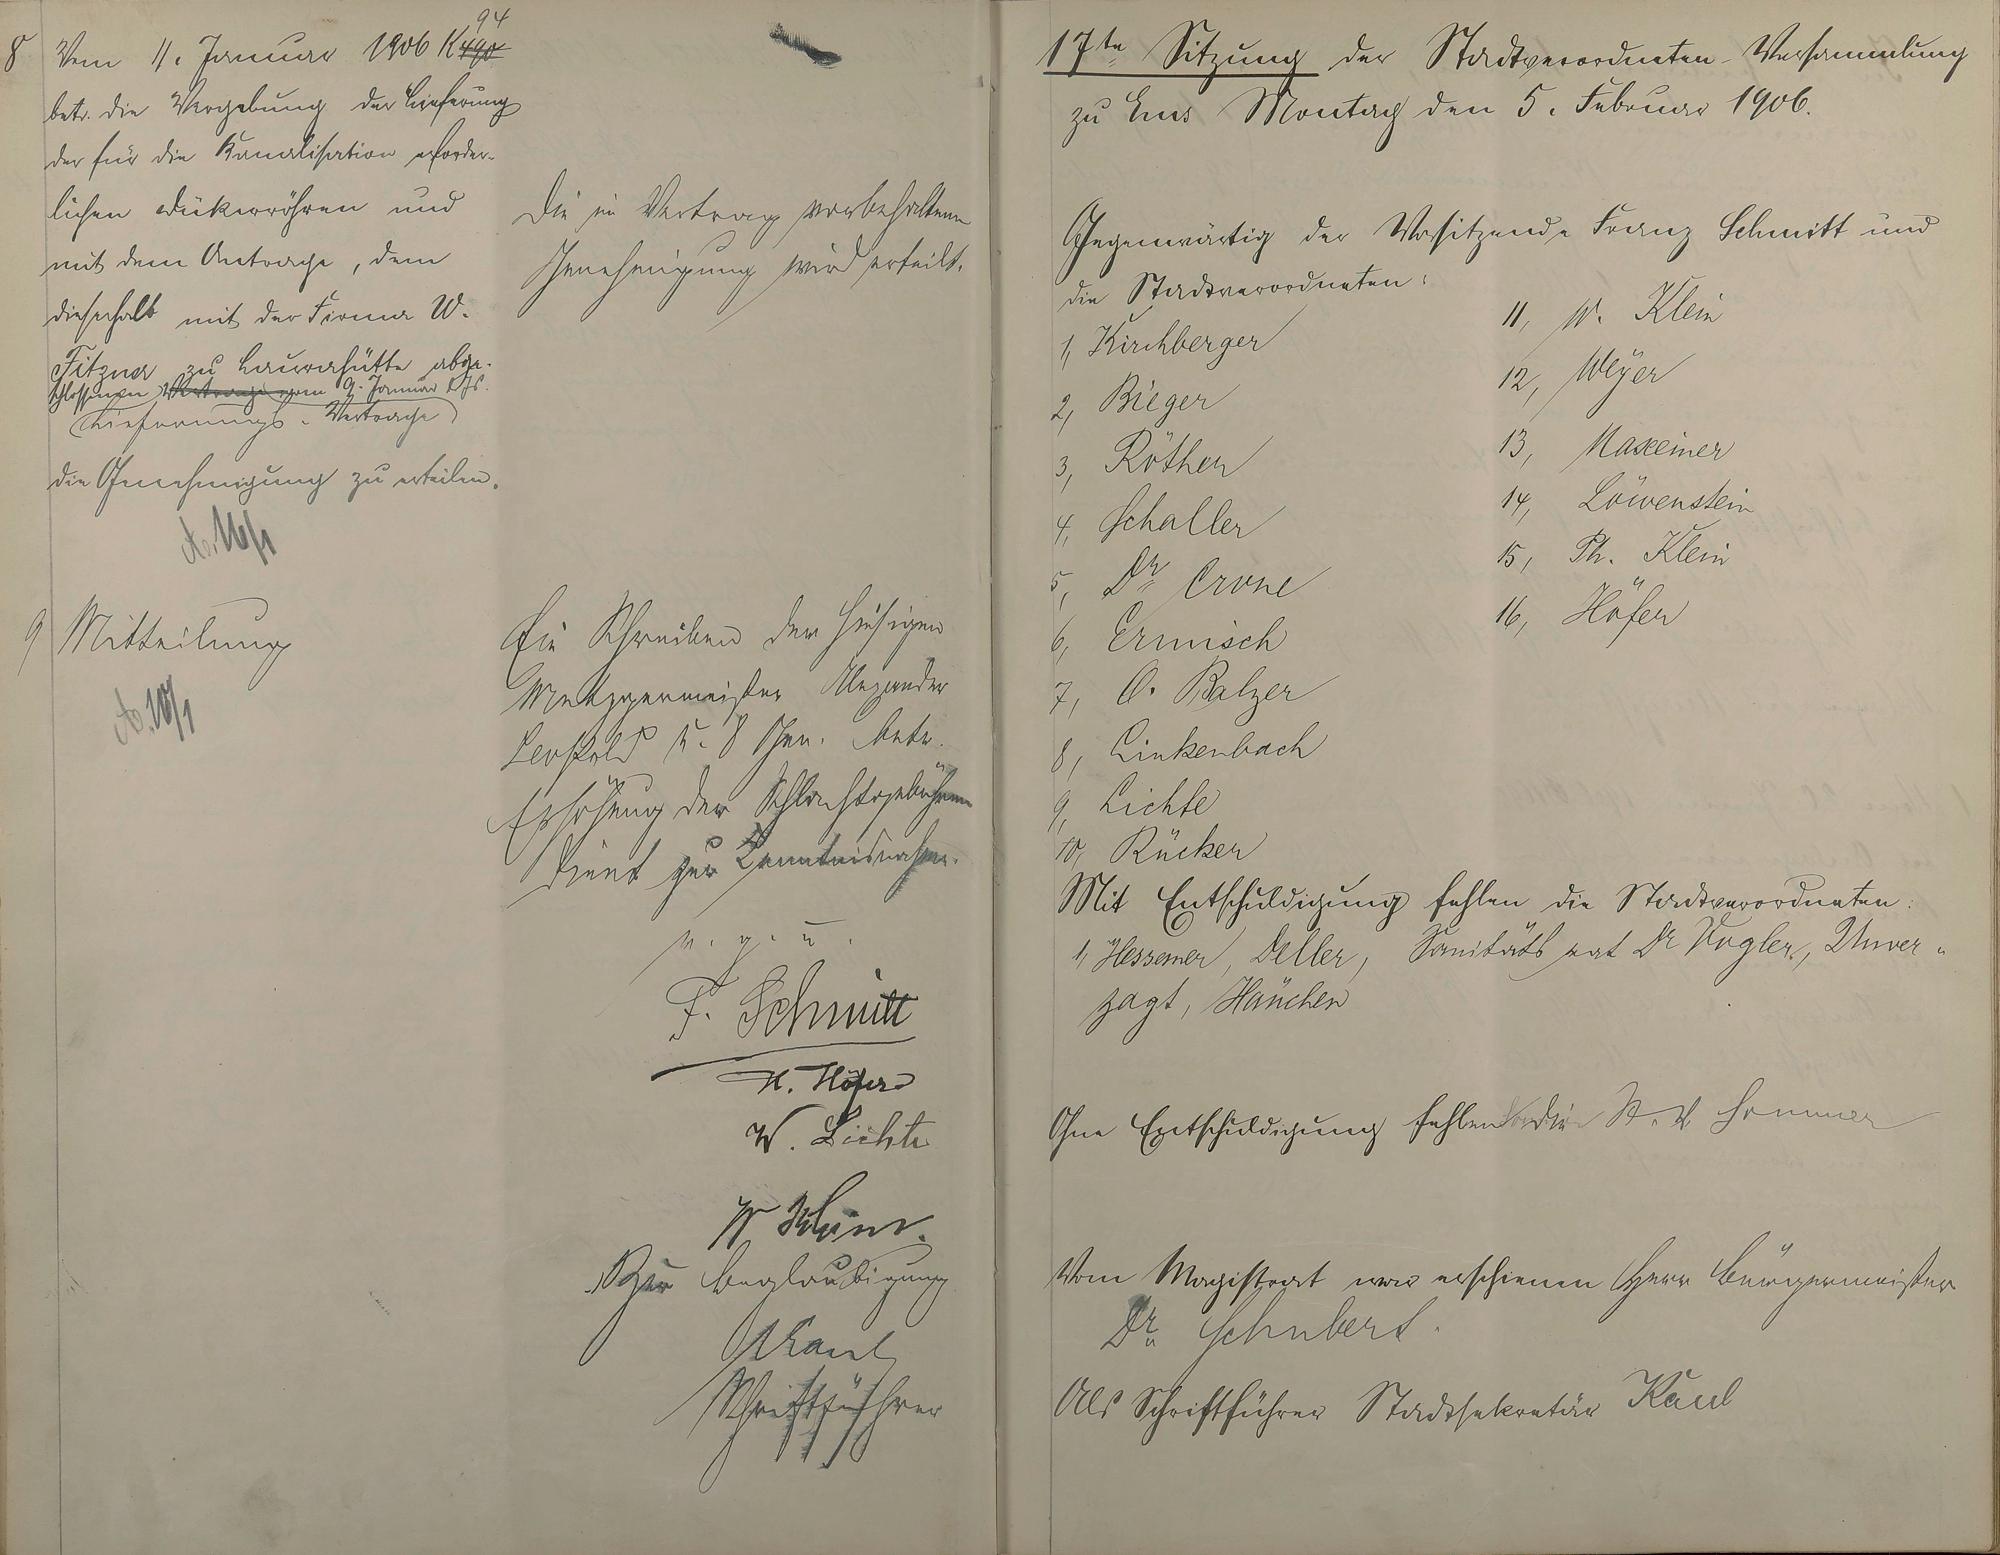 8 Vom 11. Januar 1906 K 490 94
betr. die Vergebung der Lieferung
der für die Kanalisation erforder-
lichen Dükerröhren und
mit dem Antrage, dem
dieserhalb mit der Firma W.
Fitzner zu Laurahütte abge-
schlossenen Vertrage vom 9. Januar d. Js.
(Lieferungs-Vertrage)
die Genehmigung zu erteilen.
A. 16/1
Die im Vertrag vorbehaltene
Genehmigung wird erteilt.
9 Mitteilung
A. 18/1
Ein Schreiben der hiesigen
Metzgermeister Alexander
Leopold u. 8 Gen. betr.
Erhöhung der Schlachtgebühren
dient zur Kenntnisnahme.
v. g. u.
F. Schmitt
H. Höfer
W. Lichte
W Klein.
Zur Beglaubigung
Kaul
Schriftführer
17te Sitzung der Stadtverordneten-Versammlung
zu Ems Montag den 5. Februar 1906.
Gegenwärtig der Vorsitzende Franz Schmitt und
die Stadtverordneten:
1, Kirchberger
2, Bieger
3, Röther
4, Schaller
5, Dr Crone
6, Ermisch
7, O. Balzer
8, Linkenbach
9, Lichte
10, Rücker
11, W. Klein
12, Meyer
13, Maxeiner
14, Löwenstein
15, Ph. Klein
16, Höfer
Mit Entschuldigung fehlen die Stadtverordneten:
1, Hessemer, Deller, Sanitätsrat Dr Vogler, Unver-
zagt, Häuchen
Ohne Entschuldigung fehlen die St. V. Sommer
Vom Magistrat war erschienen Herr Bürgermeister
Dr Schubert.
Als Schriftführer Stadtsekretär Kaul